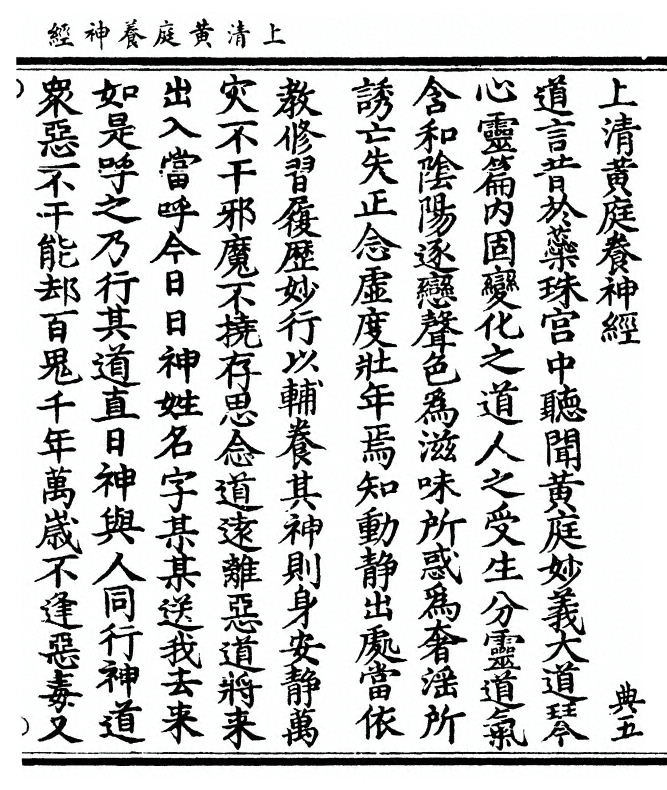 上清黃庭養神經
上清黃庭養神經
典五
道言昔於蘂珠宮中聽聞黃庭妙義大道琴
心靈篇內固變化之道人之受生分靈道氣
含和陰陽逐戀聲色爲滋味所惑爲奢滛所
誘亡失正念虛度壯年焉知動静出處當依
教修習履歷妙行以輔養其神則身安静萬
灾不干邪魔不撓存思念道遠離惡道將来
出入當呼今日日神姓名字某某送我去来
如是呼之乃行其道直日神與人同行神道
衆惡不干能却百鬼千年萬歲不逢惡毒又